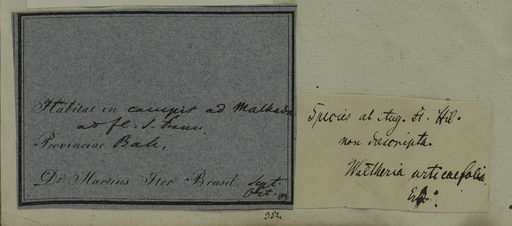 Habitat in campis ad Malhada
ad fl. S. Franc.
Provinciae Bah.
Dr Martius Iter Brasil. Sept.
Oct.
352.
Species ab Aug. St. Hil.
non descripta.
Waltheria urticaefolia